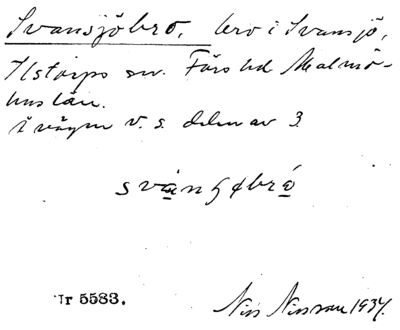 Svansjöbro, bro i Svansjö,
Ilstorps sn. Färs hd Malmö-
hus län.
i vägen v. s. delen av 3.
svanʃøbro
Nr 5583.
Nils Nilsson 1934.